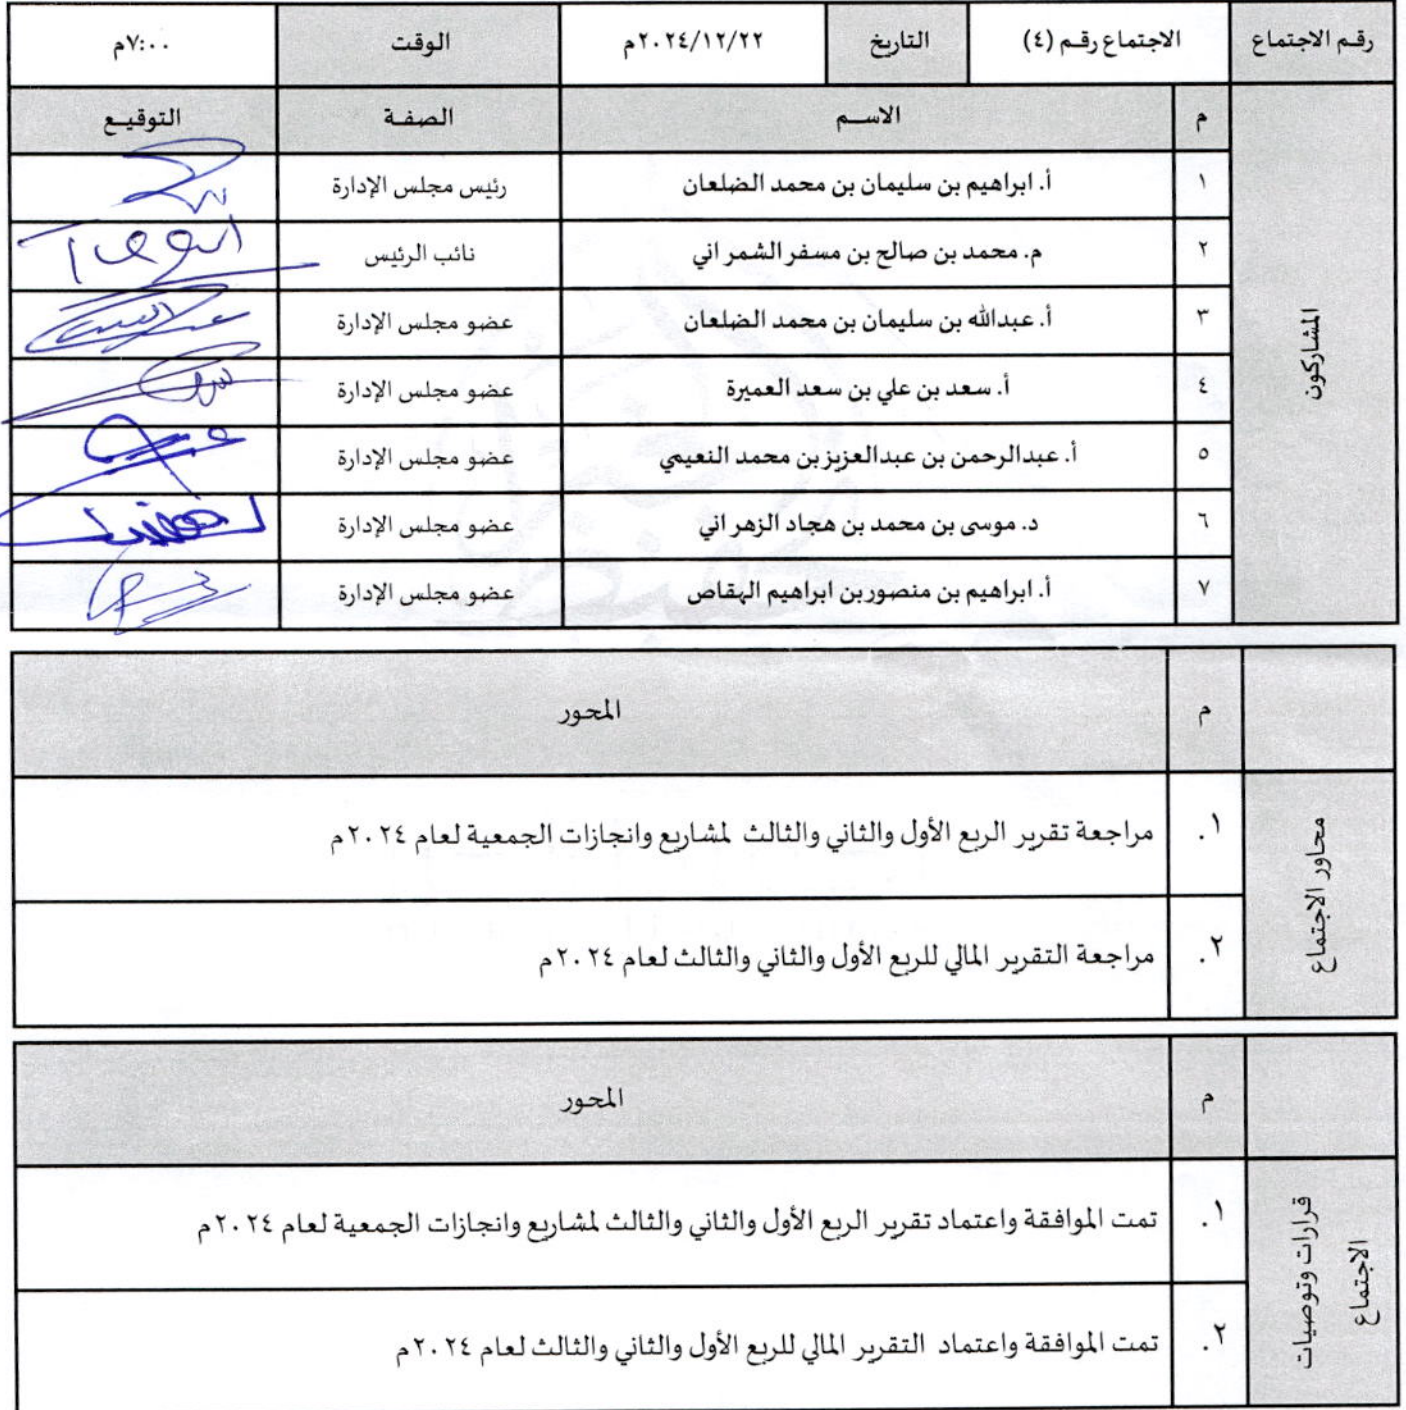 رقم الاجتماع الاجتماع رقم (٤) التاريخ ٢٠٢٤/١٢/٢٢م الوقت ٧:٠٠م
المشاركون
م الاسم الصفة التوقيع
١ أ. ابراهيم بن سليمان بن محمد الضلعان رئيس مجلس الإدارة
٢ م. محمد بن صالح بن مسفر الشمراني نائب الرئيس
٣ أ. عبدالله بن سليمان بن محمد الضلعان عضو مجلس الإدارة
٤ أ. سعد بن علي بن سعد العميرة عضو مجلس الإدارة
٥ أ. عبدالرحمن بن عبدالعزيز بن محمد النعيمي عضو مجلس الإدارة
٦ د. موسى بن محمد بن هجاد الزهراني عضو مجلس الإدارة
٧ أ. ابراهيم بن منصور بن ابراهيم الهقاص عضو مجلس الإدارة
محاور الاجتماع
م المحور
١. مراجعة تقرير الربع الأول والثاني والثالث لمشاريع وانجازات الجمعية لعام ٢٠٢٤م
٢. مراجعة التقرير المالي للربع الأول والثاني والثالث لعام ٢٠٢٤م
قرارات وتوصيات
الاجتماع
م المحور
١. تمت الموافقة واعتماد تقرير الربع الأول والثاني والثالث لمشاريع وانجازات الجمعية لعام ٢٠٢٤م
٢. تمت الموافقة واعتماد التقرير المالي للربع الأول والثاني والثالث لعام ٢٠٢٤م